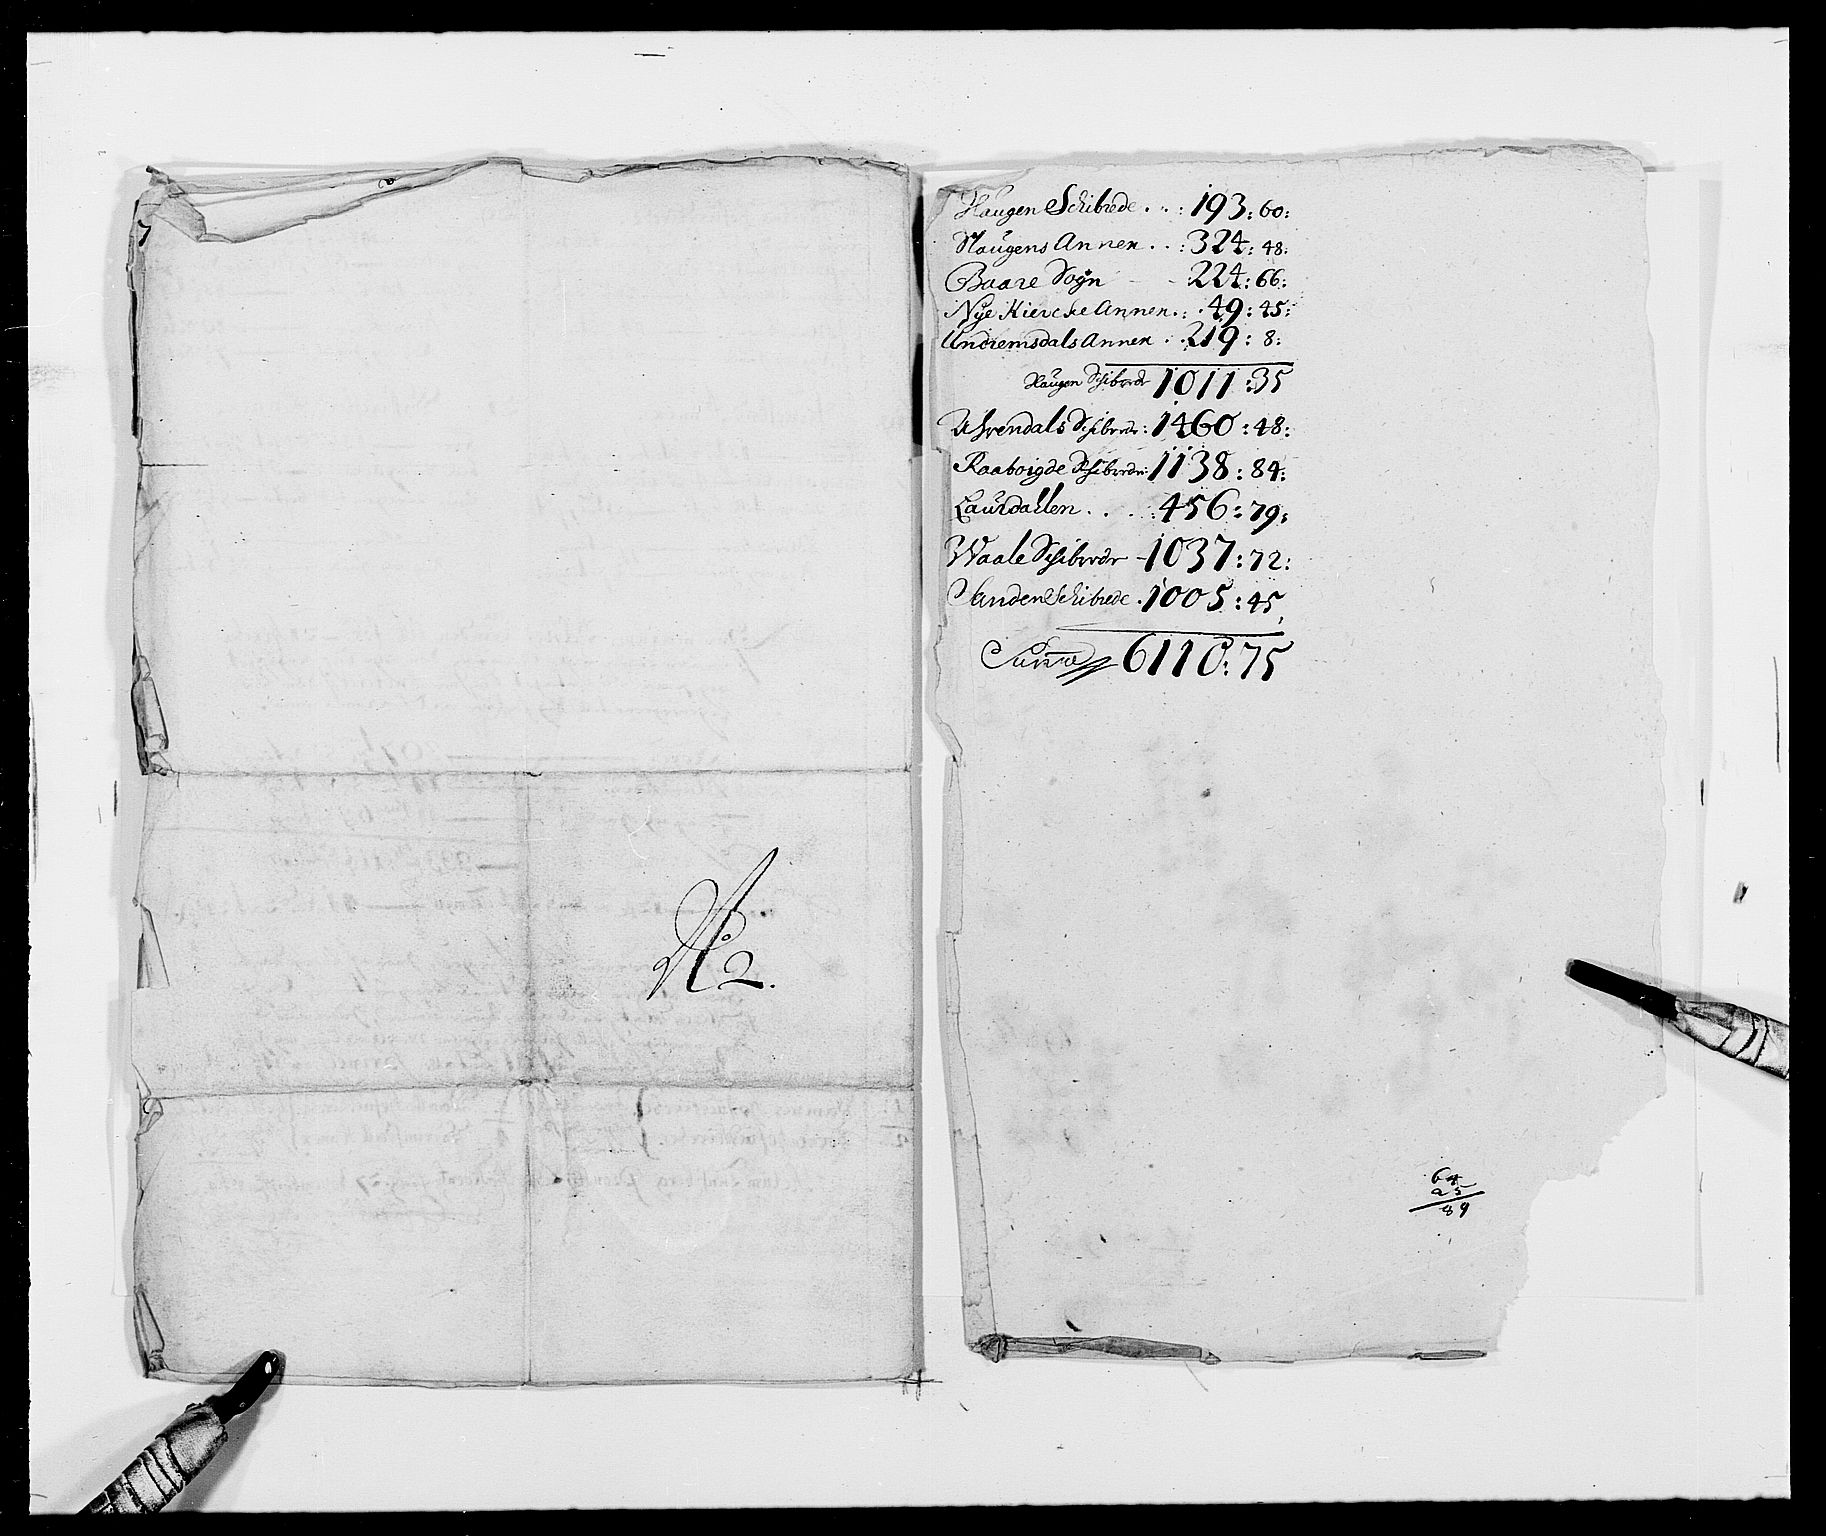 No 2.
Haugen Schibrede . . : 193 : 60 :
Haugens Annen . . : 324 : 48 :
Baare Sogn - - 224 : 66 :
Nye Kiercke Annen . : . 49 : 45 :
Undremsdals Annex . . 219 : 8 :
Haugen Schibrede 1011 : 35
Uhrendals Schibrede : 1460 : 48 :
Raaboigde Schibrede : 1138 : 84 :
Laurdahlen . . . : 456 : 79 :
Waale Schibrede - 1037 : 72 :
Sanden Schibrede . 1005 : 45
Summa 6110 : 75
64
25
89